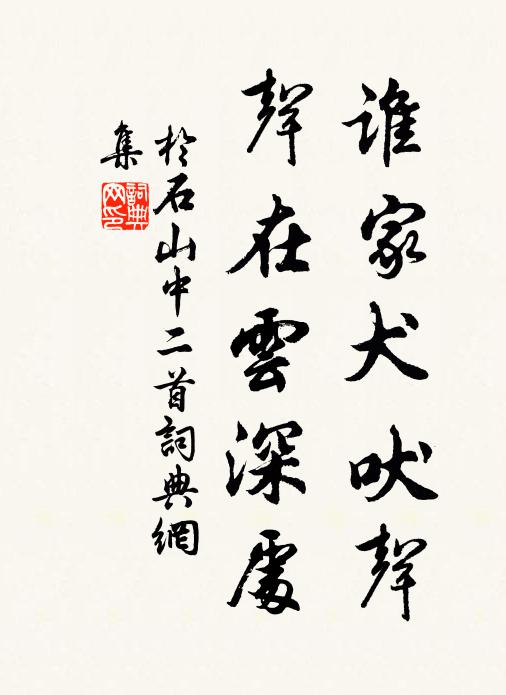 誰家犬吠聲
聲在雲深處
於石山中二首詞典網
集
詞典網印